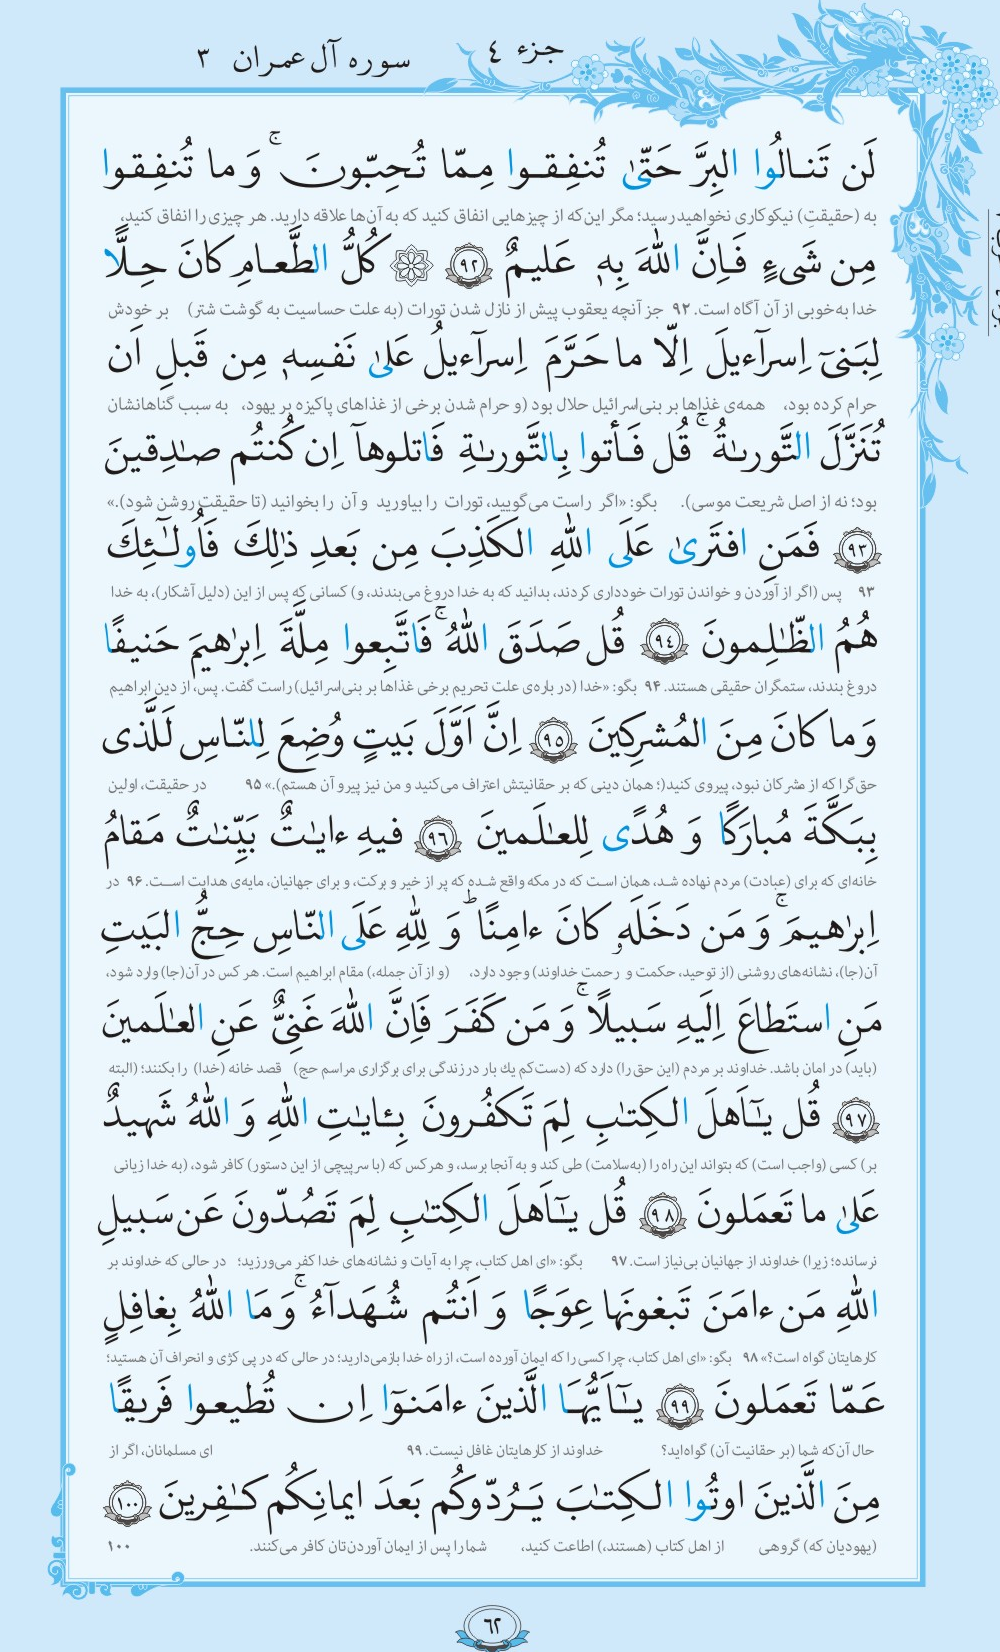 جزء ٤
سوره آل عمران ٣
لَن تَنالُوا البِرَّ حَتّىٰ تُنفِقوا مِمّا تُحِبّونَ ۚ وَ ما تُنفِقوا
به (حقیقتِ) نیکوکاری نخواهید رسید؛ مگر این‌که از چیزهایی انفاق کنید که به آن‌ها علاقه دارید. هر چیزی را انفاق کنید،
مِن شَیءٍ فَاِنَّ اللّٰهَ بِهٖ عَلیمٌ ٩٢ کُلُّ الطَّعامِ کانَ حِلًّا
خدا به‌خوبی از آن آگاه است. ۹۲ جز آنچه یعقوب پیش از نازل شدن تورات (به علت حساسیت به گوشت شتر) بر خودش
لِبَنیٓ اِسرآءیلَ اِلّا ما حَرَّمَ اِسرآءیلُ عَلیٰ نَفسِهٖ مِن قَبلِ اَن
حرام کرده بود، همه‌ی غذاها بر بنی‌اسرائیل حلال بود (و حرام شدن برخی از غذاهای پاکیزه بر یهود، به سبب گناهانشان
تُنَزَّلَ التَّورىٰةُ ۚ قُل فَأتوا بِالتَّورىٰةِ فَاتلوهآ اِن کُنتُم صـٰدِقینَ
بود؛ نه از اصل شریعت موسی). بگو: «اگر راست می‌گویید، تورات را بیاورید و آن را بخوانید (تا حقیقت روشن شود).»
٩٣ فَمَنِ افتَرىٰ عَلَی اللّٰهِ الکَذِبَ مِن بَعدِ ذٰلِكَ فَاُولٰٓئِكَ
۹۳ پس (اگر از آوردن و خواندن تورات خودداری کردند، بدانید که به خدا دروغ می‌بندند، و) کسانی که پس از این (دلیل آشکار)، به خدا
هُمُ الظّـٰلِمونَ ٩٤ قُل صَدَقَ اللّٰهُ ۚ فَاتَّبِعوا مِلَّةَ اِبرٰهیمَ حَنیفًا
دروغ بندند، ستمگران حقیقی هستند. ۹۴ بگو: «خدا (در باره‌ی علت تحریم برخی غذاها بر بنی‌اسرائیل) راست گفت. پس، از دین ابراهیم
وَ ما کانَ مِنَ المُشرِکینَ ٩٥ اِنَّ اَوَّلَ بَیتٍ وُضِعَ لِلنّاسِ لَلَّذی
حق‌گرا که از مشرکان نبود، پیروی کنید(؛ همان دینی که بر حقانیتش اعتراف می‌کنید و من نیز پیرو آن هستم).» ۹۵ در حقیقت، اولین
بِبَکَّةَ مُبارَکًا وَ هُدًی لِلعـٰلَمینَ ٩٦ فیهِ ءایـٰتٌ بَیِّنـٰتٌ مَقامُ
خانه‌ای که برای (عبادت) مردم نهاده شد، همان است که در مکه واقع شده که پر از خیر و برکت، و برای جهانیان، مایه‌ی هدایت است. ۹۶ در
اِبرٰهیمَ ۚ وَ مَن دَخَلَهٗ کانَ ءامِنًا ؕ وَ لِلّٰهِ عَلَی النّاسِ حِجُّ البَیتِ
آن(جا)، نشانه‌های روشنی (از توحید، حکمت و رحمت خداوند) وجود دارد، (و از آن جمله،) مقام ابراهیم است. هر کس در آن(جا) وارد شود،
مَنِ استَطاعَ اِلَیهِ سَبیلًا ۚ وَ مَن کَفَرَ فَاِنَّ اللّٰهَ غَنِیٌّ عَنِ العـٰلَمینَ
(باید) در امان باشد. خداوند بر مردم (این حق را) دارد که (دست‌کم یك بار در زندگی برای برگزاری مراسم حج) قصد خانه (خدا) را بکنند؛ (البته
٩٧ قُل یـٰٓاَهلَ الکِتـٰبِ لِمَ تَکفُرونَ بِـٔایـٰتِ اللّٰهِ وَ اللّٰهُ شَهیدٌ
بر) کسی (واجب است) که بتواند این راه را (به‌سلامت) طی کند و به آنجا برسد، و هرکس که (با سرپیچی از این دستور) کافر شود، (به خدا زیانی
عَلیٰ ما تَعمَلونَ ٩٨ قُل یـٰٓاَهلَ الکِتـٰبِ لِمَ تَصُدّونَ عَن سَبیلِ
نرسانده؛ زیرا) خداوند از جهانیان بی‌نیاز است. ۹۷ بگو: «ای اهل کتاب، چرا به آیات و نشانه‌های خدا کفر می‌ورزید؛ در حالی که خداوند بر
اللّٰهِ مَن ءامَنَ تَبغونَها عِوَجًا وَ اَنتُم شُهَدآءُ ۚ وَ مَا اللّٰهُ بِغافِلٍ
کارهایتان گواه است؟» ۹۸ بگو: «ای اهل کتاب، چرا کسی را که ایمان آورده است، از راه خدا باز می‌دارید؛ در حالی که در پی کژی و انحراف آن هستید؛
عَمّا تَعمَلونَ ٩٩ یـٰٓاَیُّهَا الَّذینَ ءامَنوٓا اِن تُطیعوا فَریقًا
حال آن‌که شما (بر حقانیت آن) گواه‌اید؟ خداوند از کارهایتان غافل نیست. ۹۹ ای مسلمانان، اگر از
مِنَ الَّذینَ اوتُوا الکِتـٰبَ یَرُدّوکُم بَعدَ ایمانِکُم کـٰفِرینَ ١٠٠
(یهودیان که) گروهی از اهل کتاب (هستند،) اطاعت کنید، شما را پس از ایمان آوردن‌تان کافر می‌کنند. ۱۰۰
٦٢